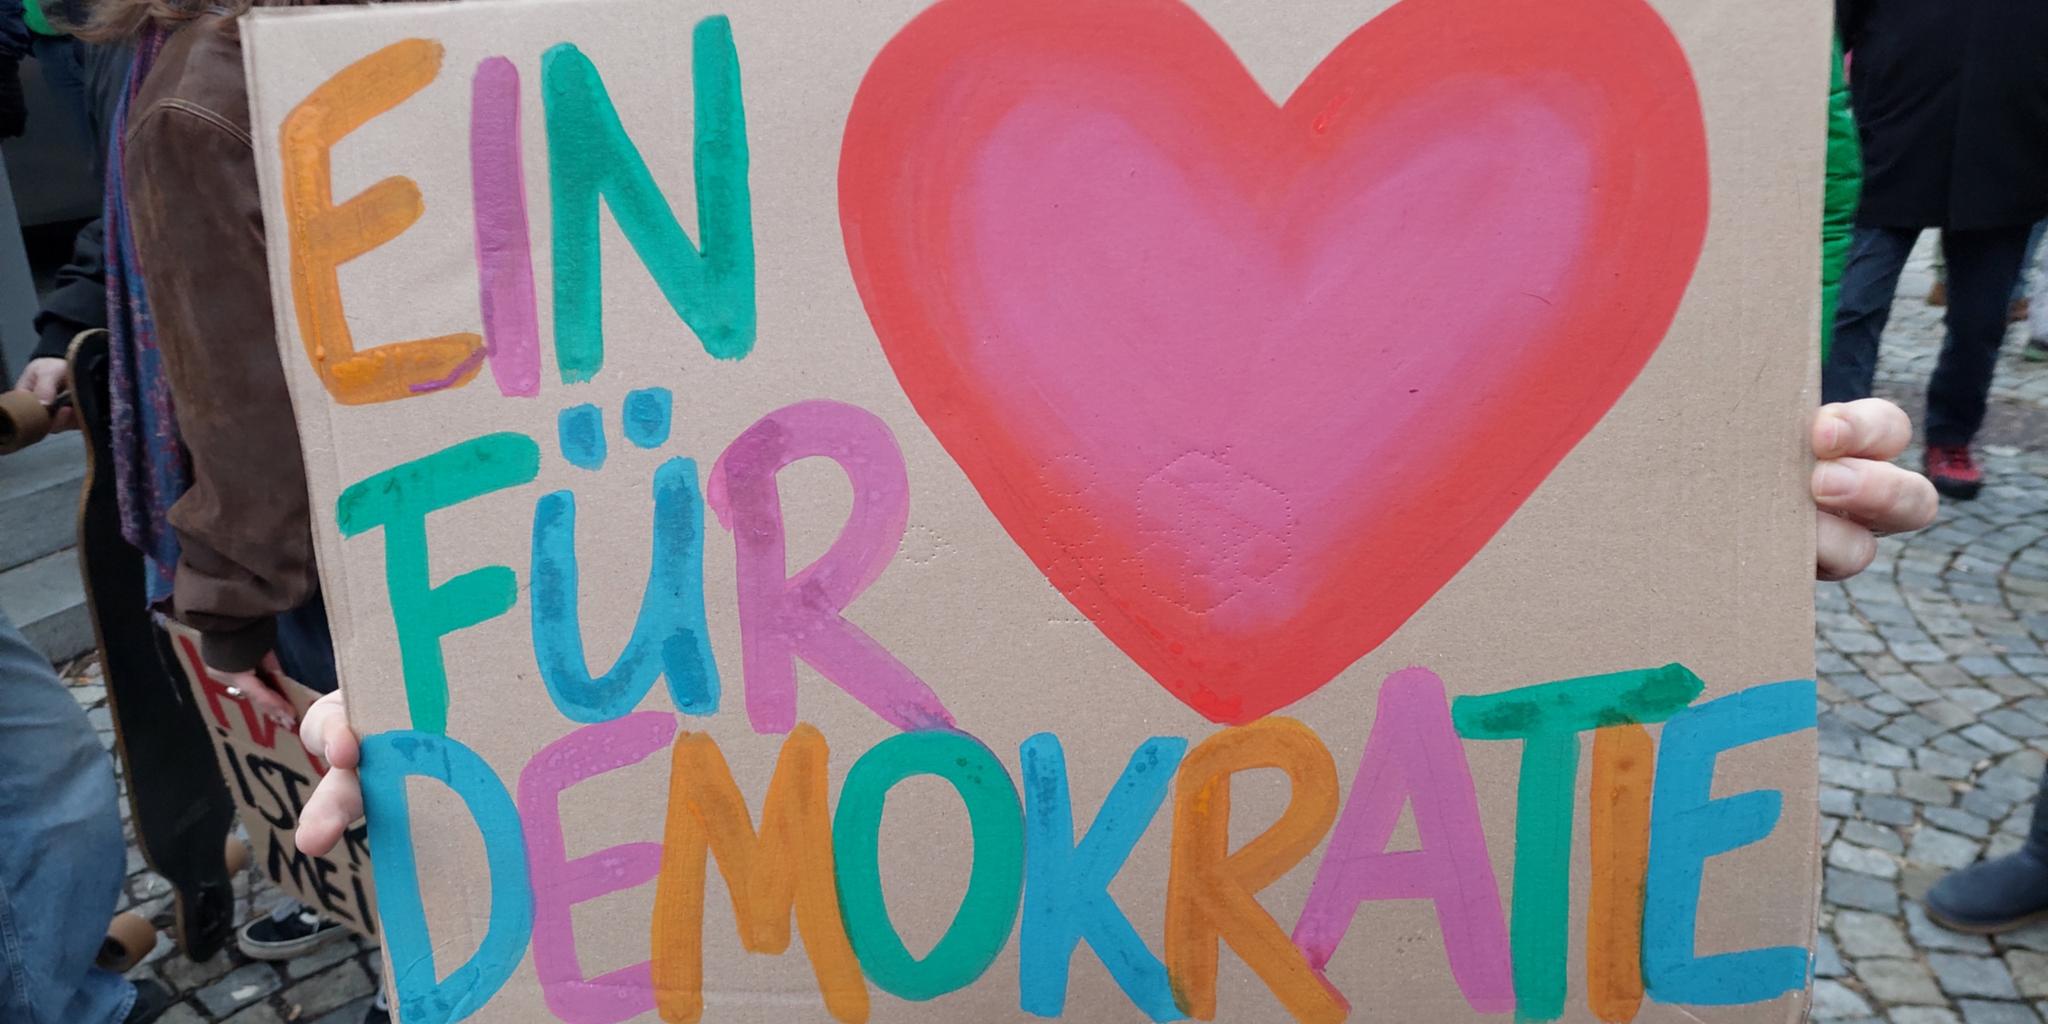 EIN
FÜR
DEMOKRATIE
IST